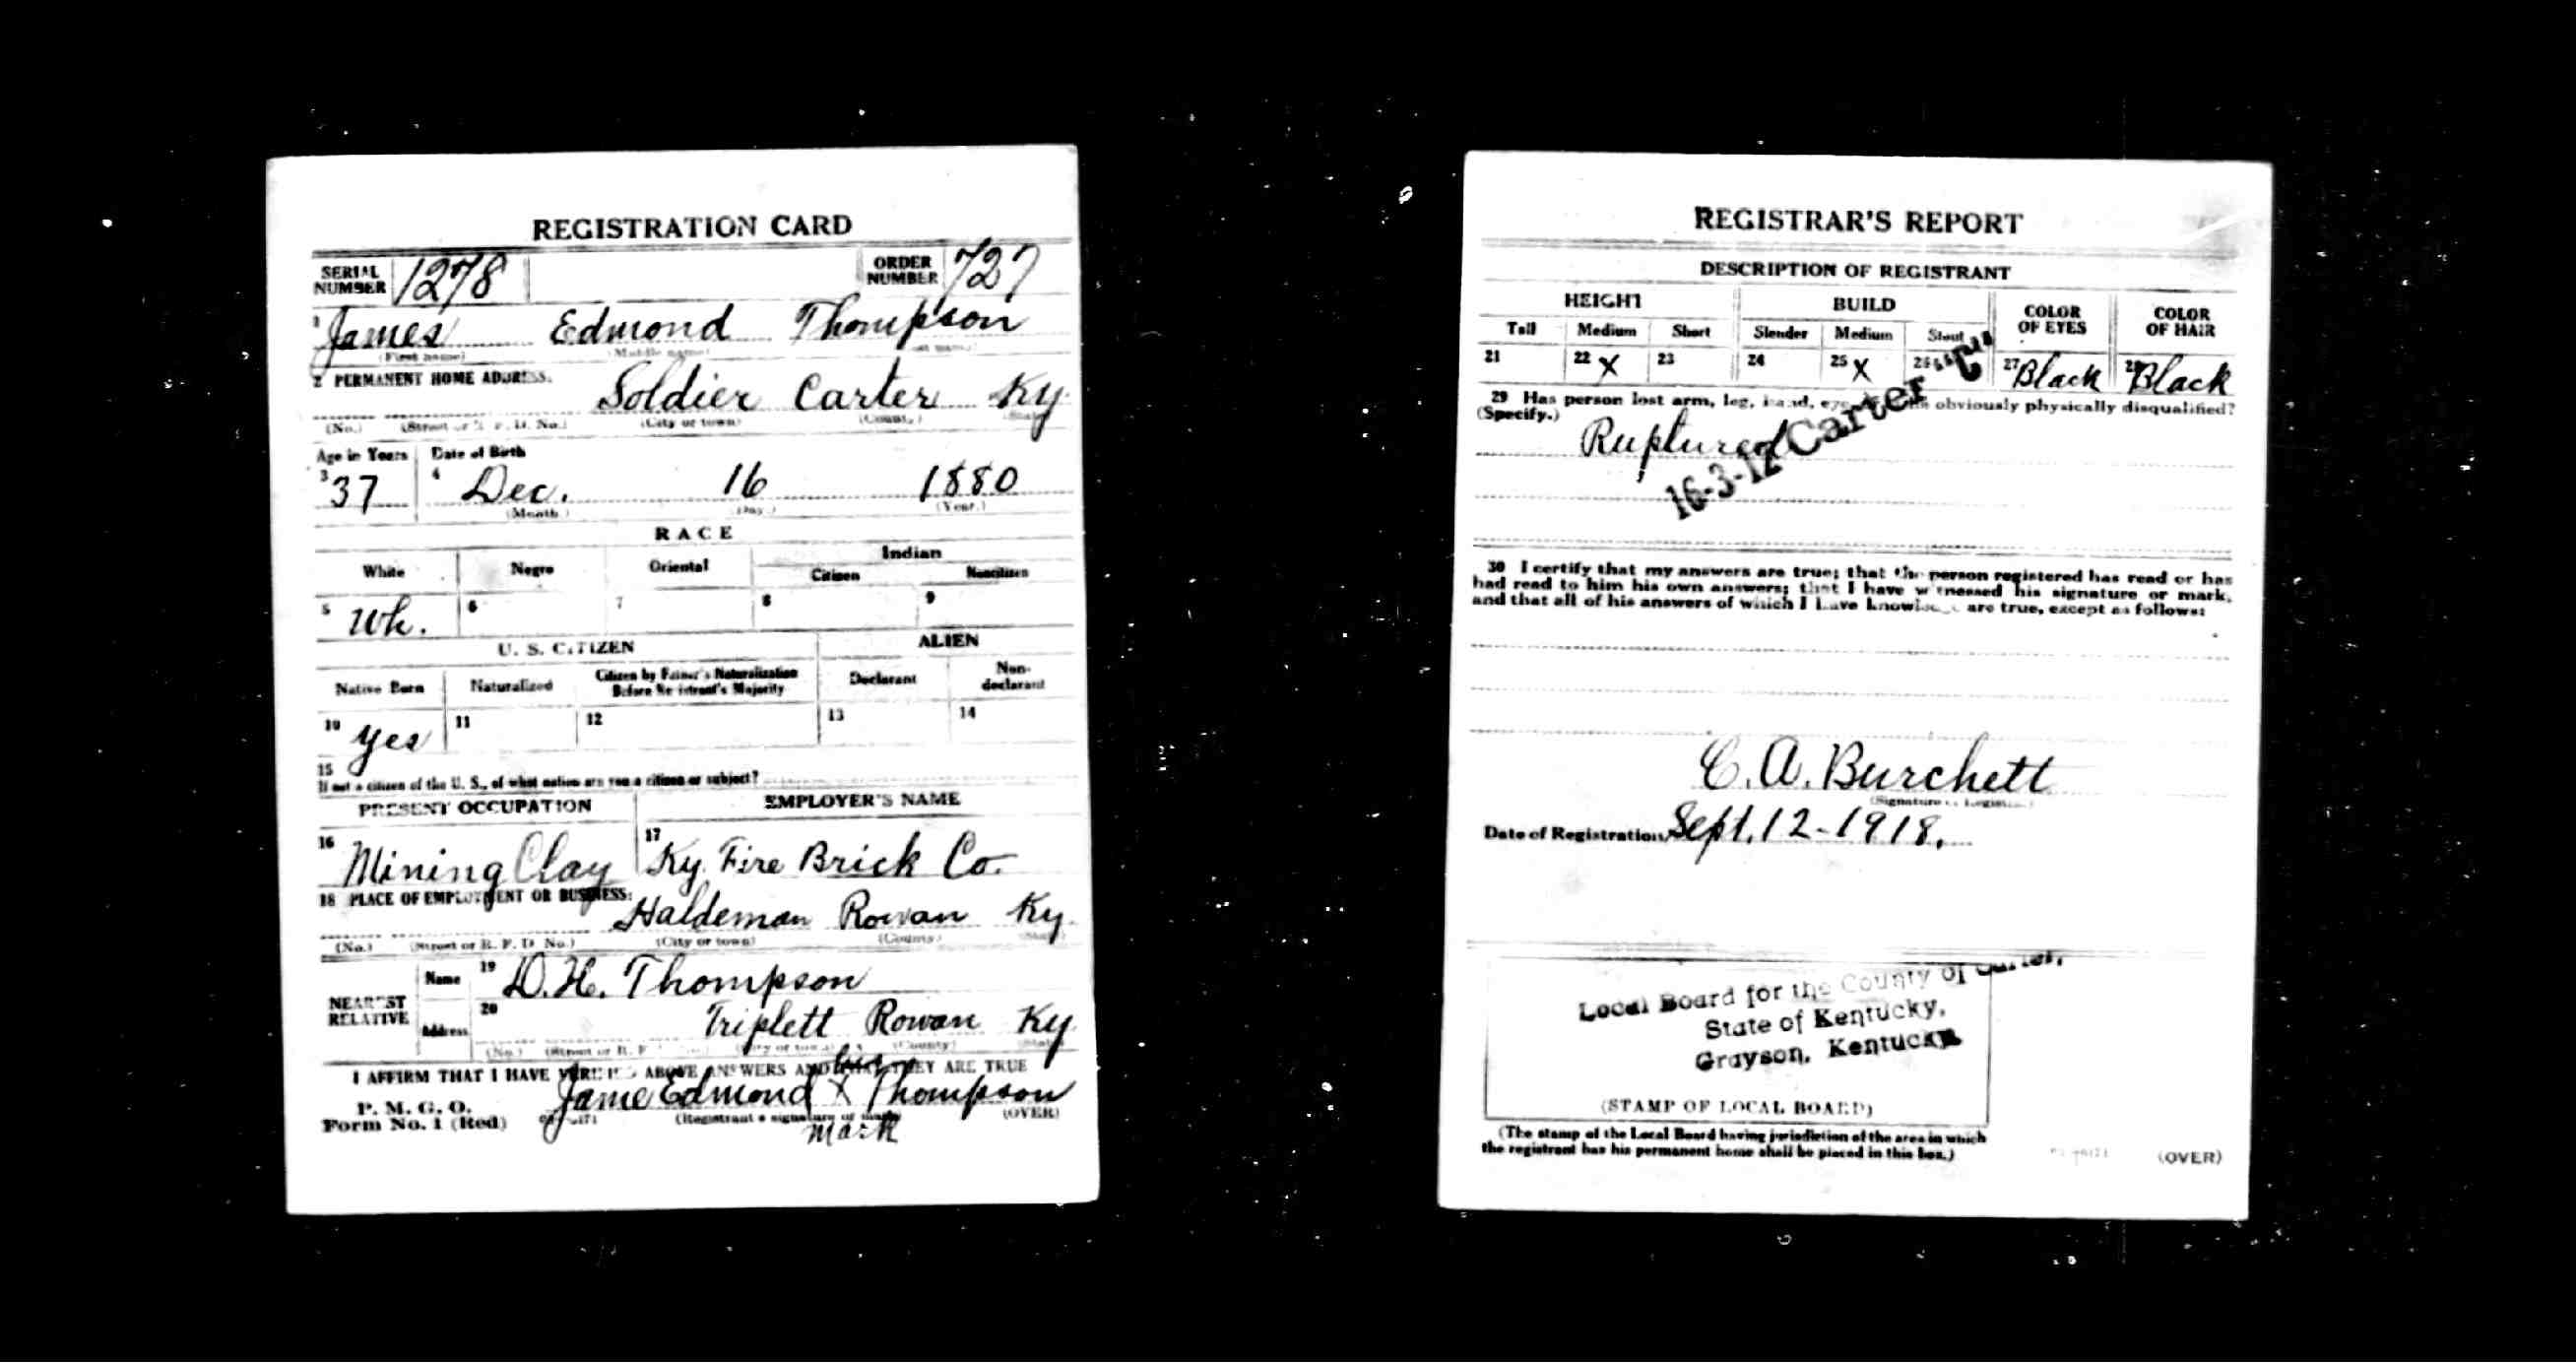 REGISTRATION CARD
SERIAL NUMBER 1278 ORDER NUMBER 727
1 James Edmond Thompson
(First name) (Middle name)
2 PERMANENT HOME ADDRESS.
Soldier Carter Ky.
(No.) (City or town)
Age in Years Date of Birth
3 37 4 Dec. 16 1880
(Month) (Day) (Year.)
RACE
White Negro Oriental Indian
Citizen Noncitizen
5 Wh. 6 7 8 9
U. S. CITIZEN ALIEN
Native Born Naturalized Citizen by Father's Naturalization Before Registrant's Majority Declarant Non-declarant
10 yes 11 12 13 14
15
If not a citizen of the U. S., of what nation are you a citizen or subject?
PRESENT OCCUPATION EMPLOYER'S NAME
16 Mining Clay 17 Ky. Fire Brick Co.
18 PLACE OF EMPLOYMENT OR BUSINESS:
Haldeman Rowan Ky.
(No.) (Street or R. F. D. No.) (City or town) (County)
NEAREST RELATIVE Name 19 D. H. Thompson
Address 20 Triplett Rowan Ky
(No.) (County)
I AFFIRM THAT I HAVE VERIFIED ABOVE ANSWERS AND THEY ARE TRUE
his
P. M. G. O.
Form No. 1 (Red) Jame Edmond X Thompson
(Registrant's signature or mark) (OVER)
mark
REGISTRAR'S REPORT
DESCRIPTION OF REGISTRANT
HEIGHT BUILD COLOR OF EYES COLOR OF HAIR
Tall Medium Short Slender Medium Stout
21 22 X 23 24 25 X 26 27 Black 28 Black
29 Has person lost arm, leg, hand, eye, obviously physically disqualified?
(Specify.)
Ruptured
16-3-12 Carter "C"
30 I certify that my answers are true; that the person registered has read or has
had read to him his own answers; that I have witnessed his signature or mark,
and that all of his answers of which I have knowledge are true, except as follows:
C. A. Burchett
(Signature
Date of Registration Sept. 12-1918.
Local Board for the County of Carter,
State of Kentucky,
Grayson, Kentucky
(STAMP OF LOCAL BOARD)
(The stamp of the Local Board having jurisdiction of the area in which
the registrant has his permanent home shall be placed in this box.)
(OVER)